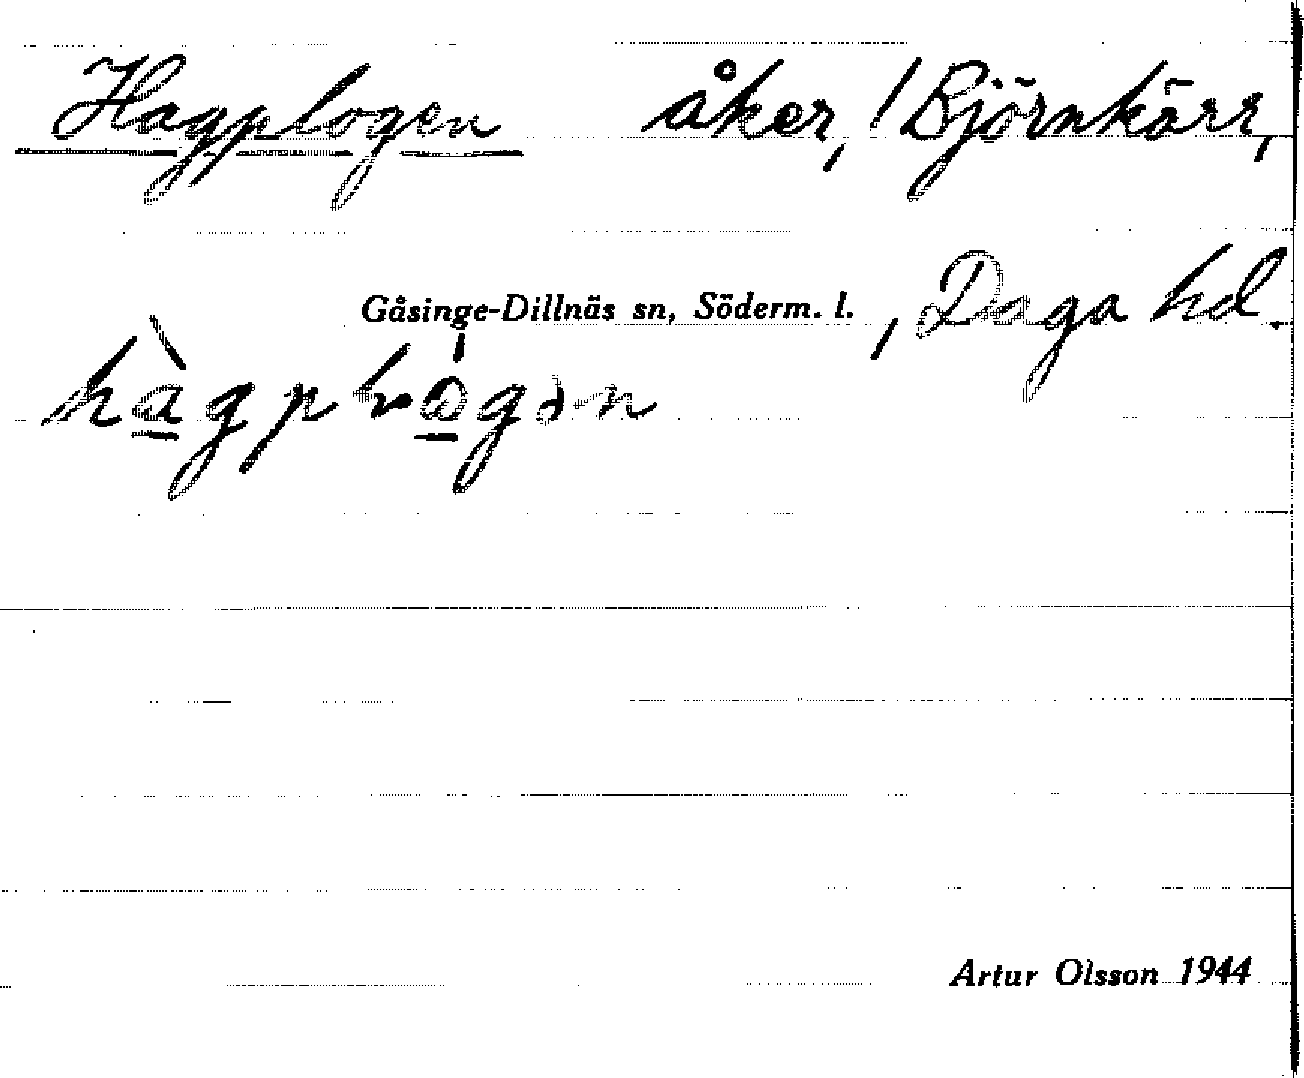 Hagplogen åker, /Björnkärr,
Gåsinge-Dillnäs sn, Söderm. l. , Daga hd.
Artur Olsson 1944